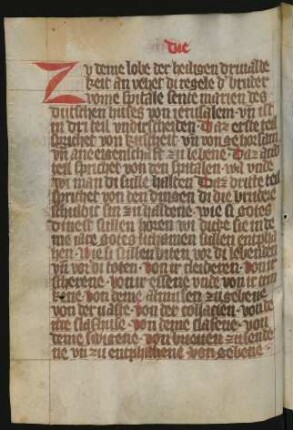 die
Zu deme lobe der heiligen drivalde
keit an vehet di regele d' bruder
vome spitale sente marien des
dutschen huses von ierusalem· vn ist
in dri teil undirscheden· Daz erste teil
sprichet von kuscheit· vn von gehorsam
vn ane eigenschaft zu lebene· Daz and'
teil sprichet von den spitalen· wa vnde
wi man di sulle halden· Daz dritte teil
sprichet von den dingen di die brudere
schuldic sin zu haldene· wie si gotes
dinest sullen horen vn dicke sie in de
me iare gotes lichamen sullen entpha
hen· Wie si sullen biten vor di lebenden
vn vor di toten· von ir cleideren· von ir
scherene· von ir essene vnde von ir tran
kene· von deme almusen zu gebene
von der vaste· von der collacien· von
deme slafene· von
deme swigene· von
ne vn zu entphahene von gebene